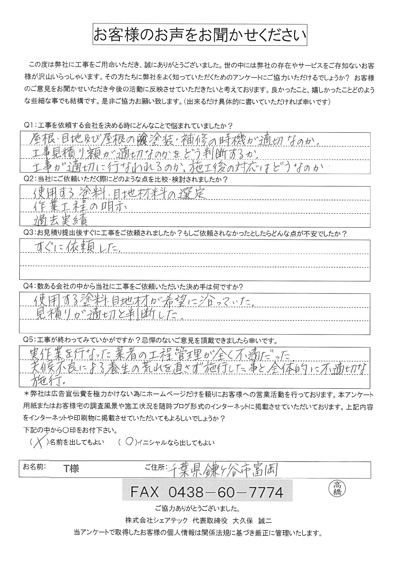 お客様のお声をお聞かせください
この度は弊社に工事をご用命いただき、誠にありがとうございました。世の中には弊社の存在やサービスをご存知ないお客
様が沢山いらっしゃいます。その方たちに弊社をよく知っていただくためのアンケートにご協力いただけるでしょうか? お客様
のご意見をお聞かせいただき今後の活動に反映させていただきたいと考えております。良かったこと、嬉しかったことどのよう
な些細な事でも結構です。是非ご協力お願い致します。(出来るだけ具体的に書いていただければ幸いです)
Q1:工事を依頼する会社を決める時にどんなことで悩まれていましたか?
屋根・目地及び屋根の塗装・補修の時機が適切なのか。
工事見積り額が適切なのかをどう判断するか。
工事が適切に行なわれるのか、施工後の対応はどうなのか
Q2:当社にご依頼いただく際にどのような点を比較・検討されましたか?
使用する塗料・目地材料の選定
作業工程の明示
過去実績
Q3:お見積り提出後すぐに工事をご依頼されましたか?もしご依頼されなかったとしたらどんな点が不安でしたか?
すぐに依頼した。
Q4:数ある会社の中から当社にご依頼いただいた決め手は何ですか?
使用する塗料、目地材が希望に沿っていた。
見積りが適切と判断した。
Q5:工事が終わってみていかがですか?忌憚のないご意見を頂戴できましたら幸いです。
実作業を行なった業者の工程管理が全く不満だった
天候不良による養生の荒れを直さず施行した事と全体的に不適切な
施行。
*弊社は広告宣伝費を極力かけない為にホームページだけを頼りにお客様への営業活動を行っております。本アンケート
用紙またはお客様宅の調査風景や施工状況を随時ブログ形式のインターネットに掲載させていただいております。上記内容
をインターネットや印刷物に掲載させていただいてもよろしいでしょうか?
下記の中から〇印をお付下さい。
(X)名前を出してもよい (〇)イニシャルなら出してもよい
お名前: T様 ご住所: 千葉県鎌ケ谷市富岡
FAX 0438-60-7774
高橋
ご協力ありがとうございました。
株式会社シェアテック 代表取締役 大久保 誠二
当アンケートで取得したお客様の個人情報は関係法規に基づき厳正に管理いたします。